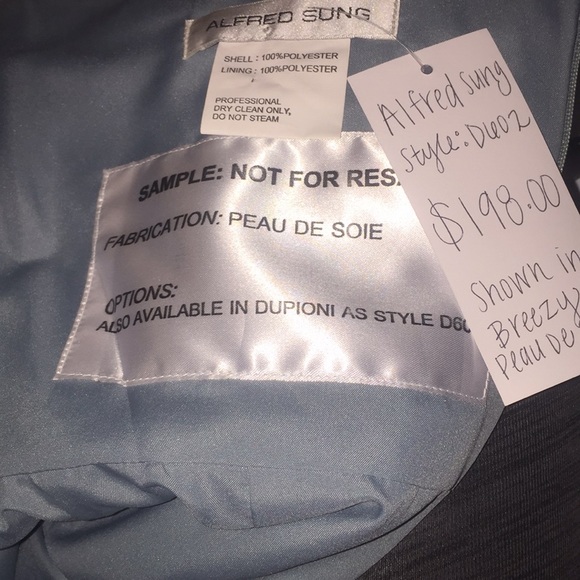 ALFRED SUNG
SHELL : 100%POLYESTER
LINING : 100%POLYESTER
PROFESSIONAL
DRY CLEAN ONLY,
DO NOT STEAM
SAMPLE: NOT FOR RES
FABRICATION: PEAU DE SOIE
OPTIONS:
ALSO AVAILABLE IN DUPIONI AS STYLE D60
Alfred Sung
Style: D602
$198.00
Shown in
Breezy
Peau De